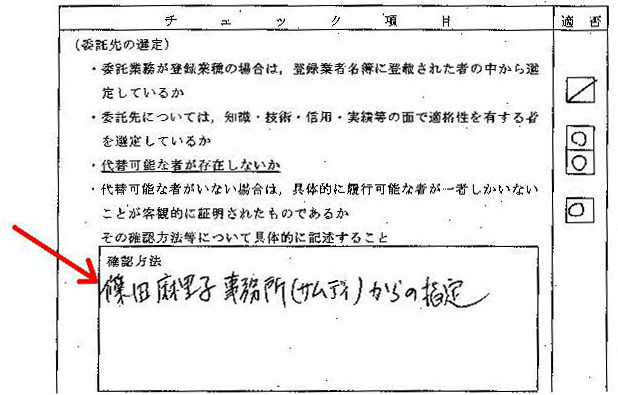 チェック項目 適否
（委託先の選定）
・委託業務が登録業種の場合は，登録業者名簿に登載された者の中から選
定しているか
・委託先については，知識・技術・信用・実績等の面で適格性を有する者
を選定しているか ○
・代替可能な者が存在しないか ○
・代替可能な者がいない場合は，具体的に履行可能な者が一者しかいない
ことが客観的に証明されたものであるか ○
その確認方法等について具体的に記述すること
確認方法
篠田麻里子事務所(サムデイ)からの指定